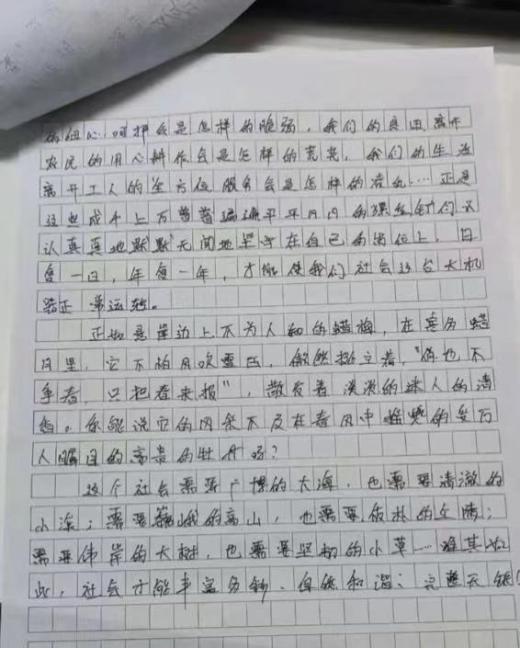 的细心呵护会是怎样的脆弱,我们的良田离开
农民的用心耕作会是怎样的荒芜,我们的生活
离开工人的全方位服务会是怎样的混乱…正是
这些成千上万普普通通平平凡凡的螺丝钉们认
认真真地默默无闻地坚守在自己的岗位上,日
复一日,年复一年,才能使我们社会这台大机
器正常运转。
正如悬崖边上不为人知的蜡梅,在寒冬腊
月里,它不怕风吹雪压,傲然挺立着,"俏也不
争春,只把春来报",散发着淡淡的迷人的清
香。你能说它的风采不及在春风中 的受万
人瞩目的高贵的牡丹吗?
这个社会需要广博的大海,也需要清澈的
小溪;需要巍峨的高山,也需要 的丘陵;
需要伟岸的大树,也需要坚韧的小草…唯其如
此,社会才能丰富多彩、自然和谐、完整无缺!